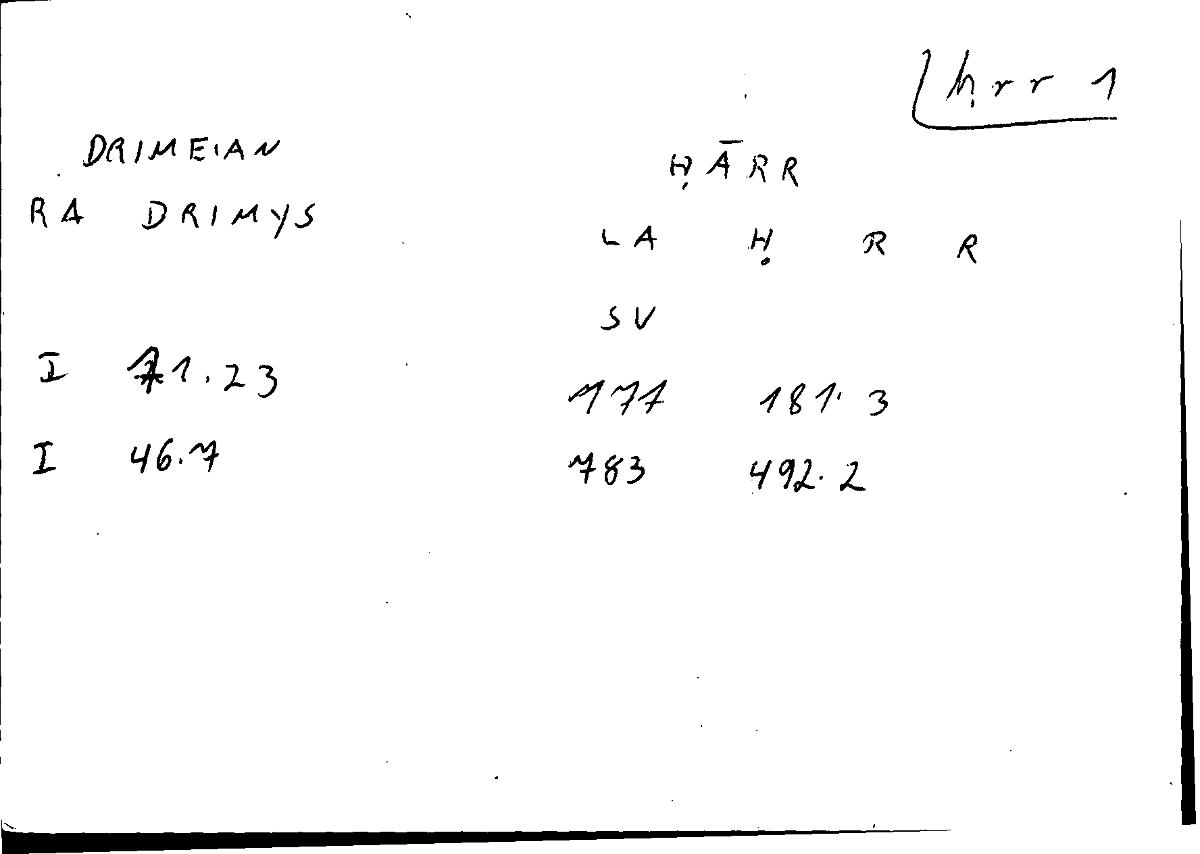 ḥrr 1
DRIMEIAN
ḤĀRR
RA DRIMYS
LA Ḥ R R
SV
I 71.23
177 181.3
I 46.7
783 492.2